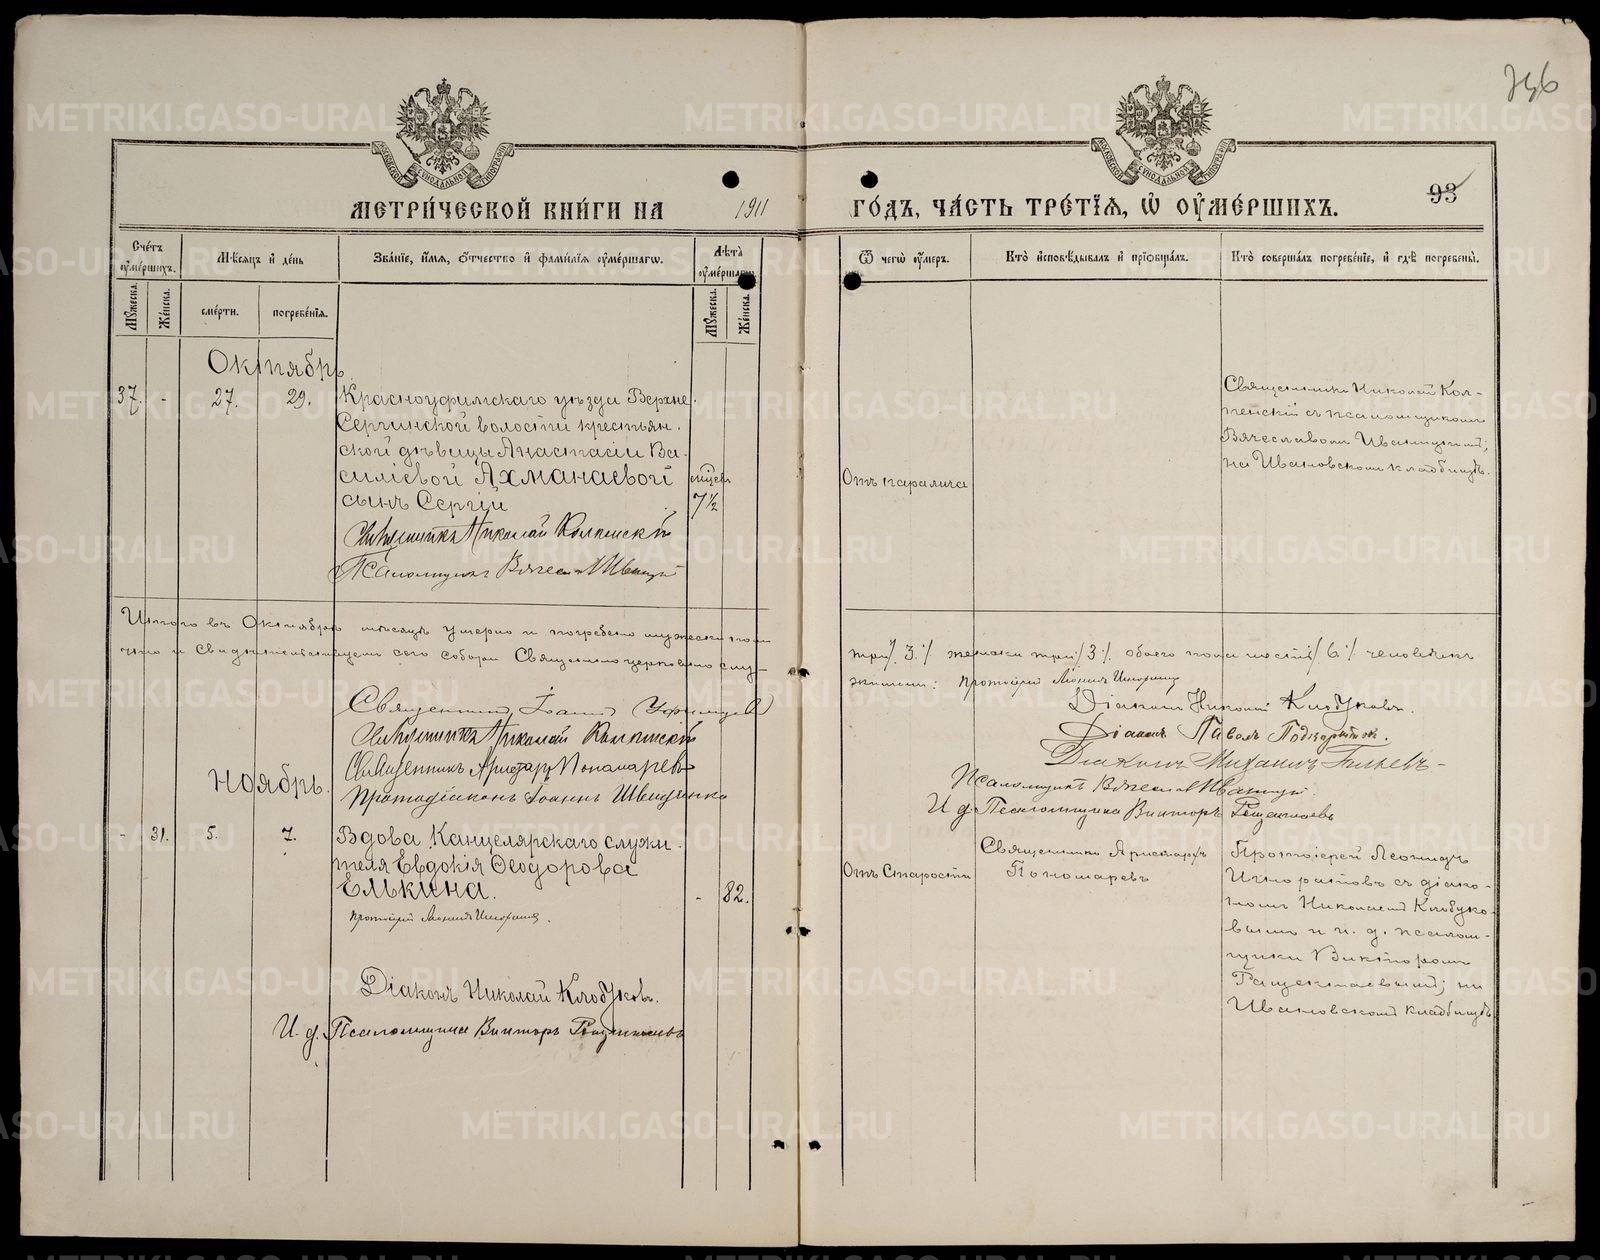 746
МЕТРИ́ЧЕСКОЙ КНИ́ГИ НА 1911 ГО́ДЪ, ЧА́СТЬ ТРЕ́ТІЯ, Ѡ ОУМЕ́РШИХЪ.
93
Сче́тъ оуме́ршихъ.
Мѣсяцъ и де́нь
Зва́ніе, и́мя, о́тчество и фами́лія оуме́ршагѡ.
Лѣта̀ оуме́ршагѡ.
Ѿ чегѡ̀ оу́меръ.
Кто̀ исповѣ́дывалъ и пріѡбща́лъ.
Кто̀ соверша́лъ погребе́ніе, и гдѣ̀ погребе́ны.
Му́жеска.
Же́нска.
сме́рти.
погребе́нія.
Му́жеска.
Же́нска.
Октябрь.
37. - 27. 29.
Красноуфимскаго уѣзда Верхне
Сергинской волости крестьян-
ской дѣвицы Анастасіи Ва-
силіевой Ахманаевой
сынъ Сергій
мѣсяц.
7½
Отъ паралича
Священникъ Николай Кол-
пенскій съ псаломщикомъ
Вячеславомъ Иваницкимъ;
на Ивановскомъ кладбищѣ.
Священникъ Николай Колпенскій
Псаломщикъ Вячеславъ Иваницкій
Итого въ Октябрѣ мѣсяцѣ умерло и погребено мужеска пола
три /3./ женска три /3/. обоего пола шесть /6./ человѣкъ
что и свидѣтельствуемъ сего собора Священно церковно слу-
жители: Протоіерей Леонидъ Игноратовъ
Священникъ Іоаннъ Уфимцевъ
Священникъ Николай Колпенскій
Священникъ Аристархъ Пономаревъ
Протодіаконъ Іоаннъ Швецченко
Діаконъ Николай Клобуковъ.
Діаконъ Павелъ
Діаконъ Михаилъ
Псаломщикъ Вячеславъ Иваницкій
И. д. Псаломщика Викторъ
Ноябрь.
- 31. 5. 7.
Вдова Канцелярскаго служи-
теля Евдокія Ѳеодорова
Елькина.
- 82.
Отъ Старости
Священникъ Аристархъ
Пономаревъ
Протоіерей Леонидъ
Игноратовъ съ діако-
номъ Николаемъ Клобуко-
вымъ и и. д. псалом-
щика Викторомъ
на
Ивановскомъ кладбищѣ
Протоіерей Леонидъ Игноратовъ.
Діаконъ Николай Клобуковъ.
И. д. Псаломщика Викторъ
METRIKI.GASO-URAL.RU